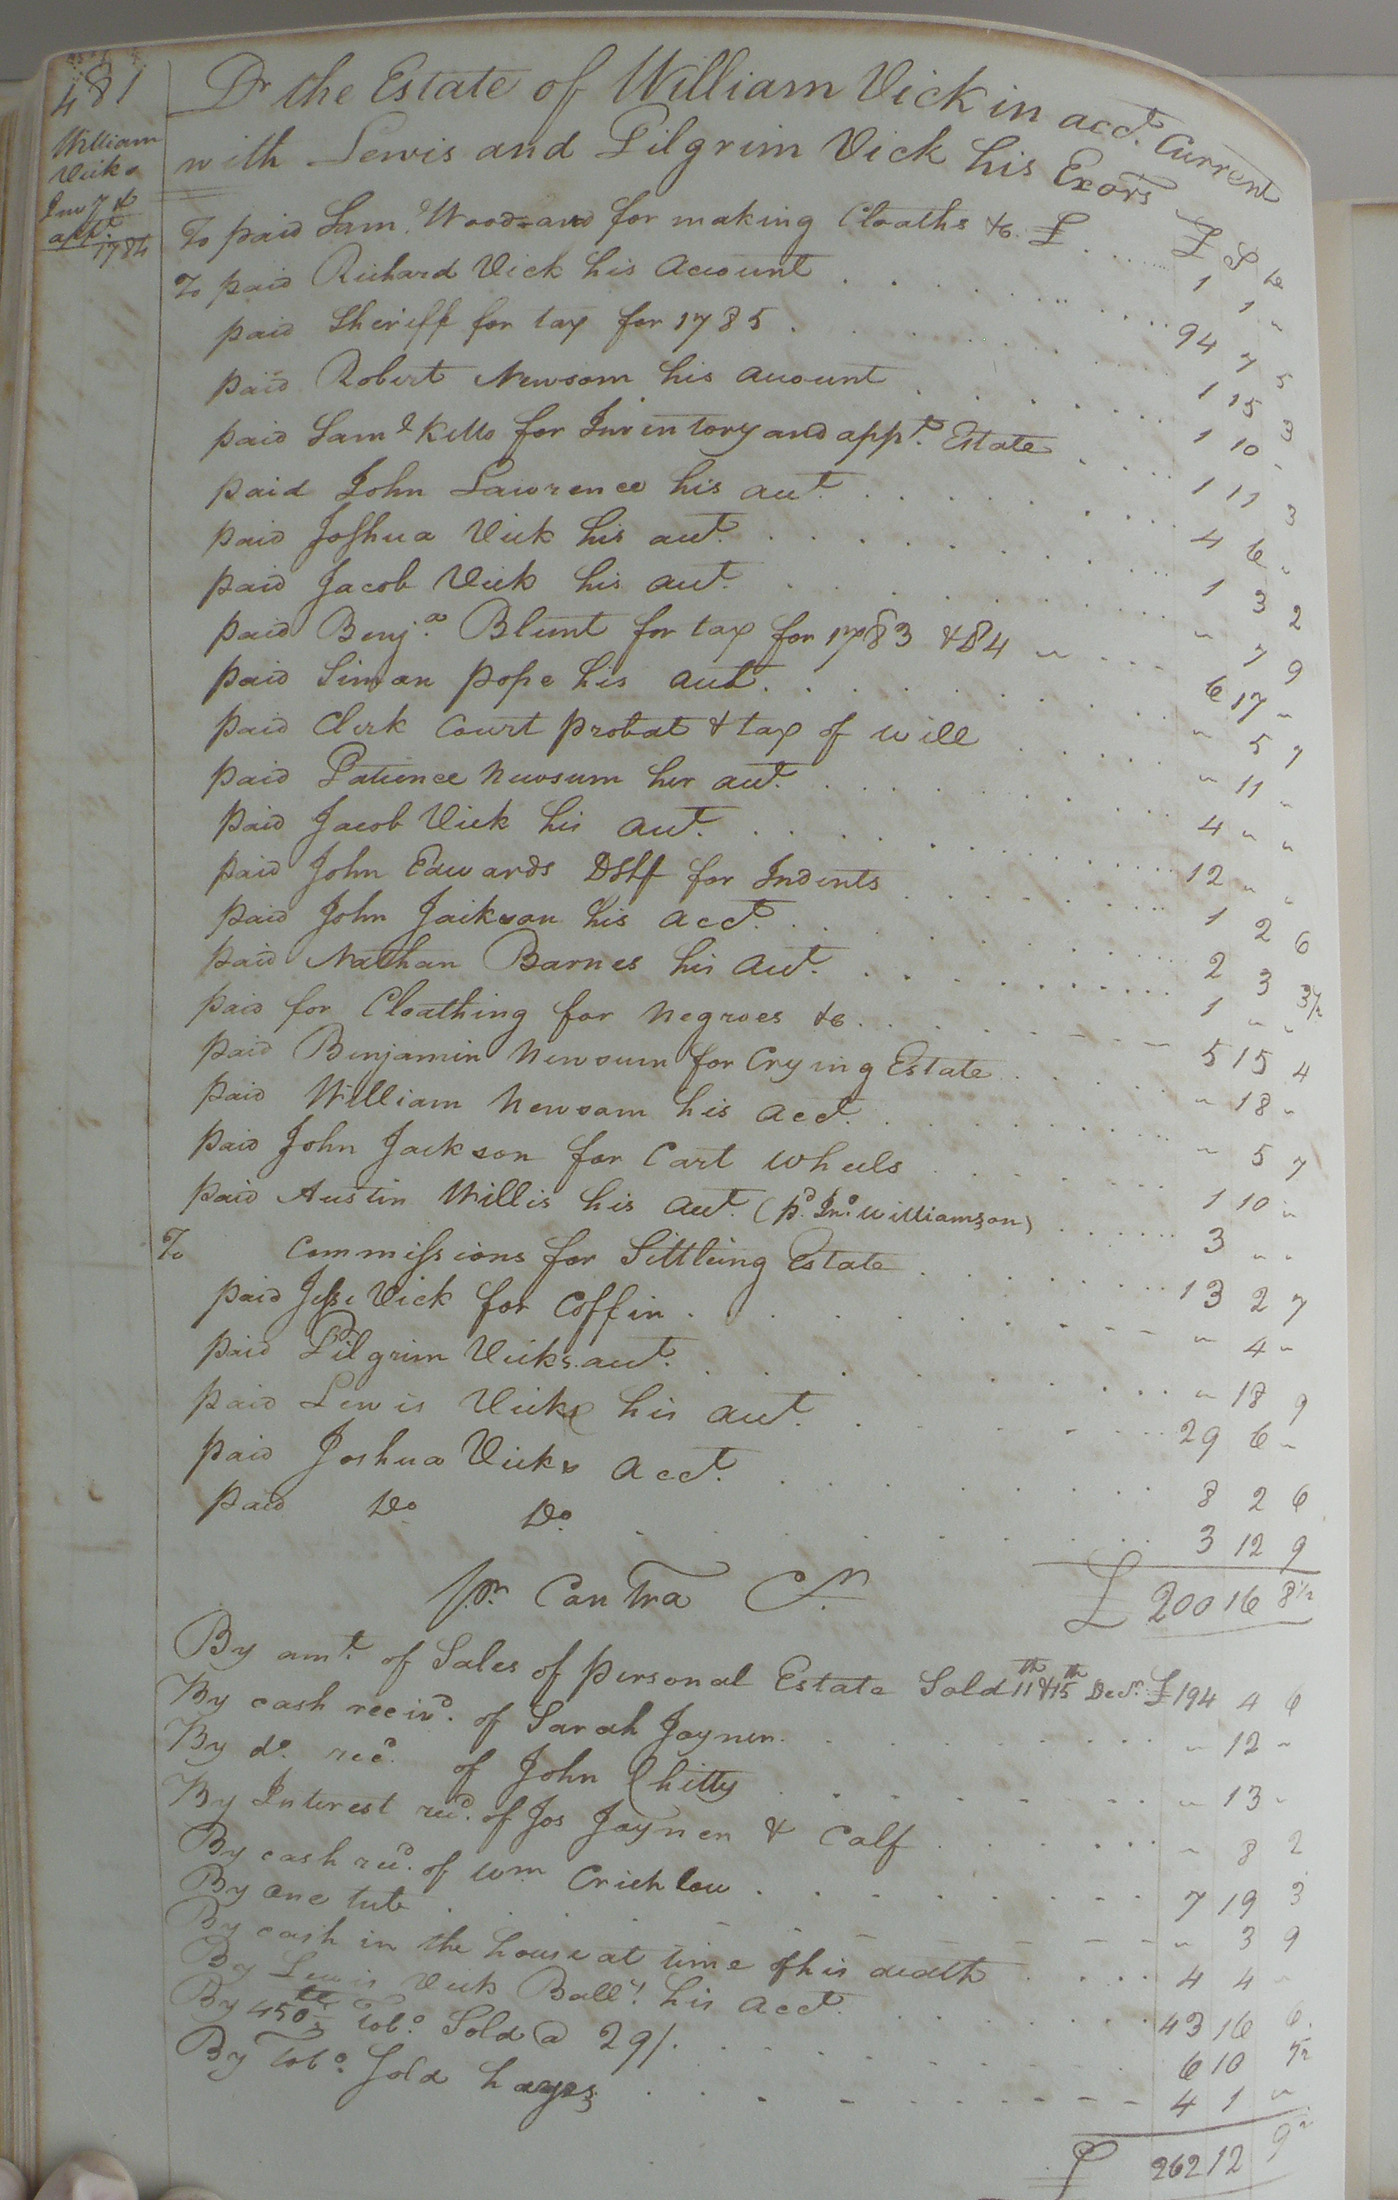 481
William
Vicks
Invy &
appt.
1784
Dr the Estate of William Vick in acct. Current
with Lewis and Pilgrim Vick his Exors £ S d
To paid Saml. Woodard for making Cloaths &c. £ 1 1 "
To paid Richard Vick his Account 94 7 5
paid Sheriff for tax for 1785 1 15 3
paid Robert Newsom his account 1 10 -
paid Saml Kello for Inventory and appt. Estate 1 11 3
paid John Lawrence his acct. 4 6 "
paid Joshua Vick his acct. 1 3 2
paid Jacob Vick his acct. " 7 9
paid Benja. Blunt for tax for 1783 & 84 6 17 "
paid Simon pope his acct. " 5 7
paid Clerk Court probat & tax of will " 11 "
paid Patience Newsum her acct. 4 " "
paid Jacob Vick his acct. 12 " "
paid John Edwards DShff for Indents 1 2 6
paid John Jaikson his acct. 2 3 3½
paid Nathan Barnes his acct. 1 " "
paid for Cloathing for Negroes &c. 5 15 4
paid Benjamin Newsum for Crying Estate " 18 "
paid William Newsom his acct. " 5 7
paid John Jackson for Cart wheels 1 10 "
paid Austin Willis his acct. (pd. Jno. Williamson) 3 " "
To Commissions for Sittleing Estate 13 2 7
paid Jesse Vick for Coffin " 4 "
paid Pilgrim Vicks acct. " 18 9
paid Lewis Vicks his acct. 29 6 "
paid Joshua Vicks acct. 8 2 6
paid Do. Do. 3 12 9
£ 200 16 8½
pr. Contra Cr.
By amt. of Sales of personal Estate Sold 11th & 15th Decr. £194 4 6
By cash receivd. of Sarah Joyner " 12 "
By do. recd. of John Chitty " 13 "
By Interest recd. of Jos Joyner & Calf " 8 2
By cash recd. of Wm Crichlow 7 19 3
By one tub " 3 9
By cash in the house at time of his death 4 4 "
By Lewis Vick Ball. his acct. 43 16 6
By 450 lb Tobo. Sold @ 29/. 6 10
By Tobo. Sold 4 1 "
£ 262 12